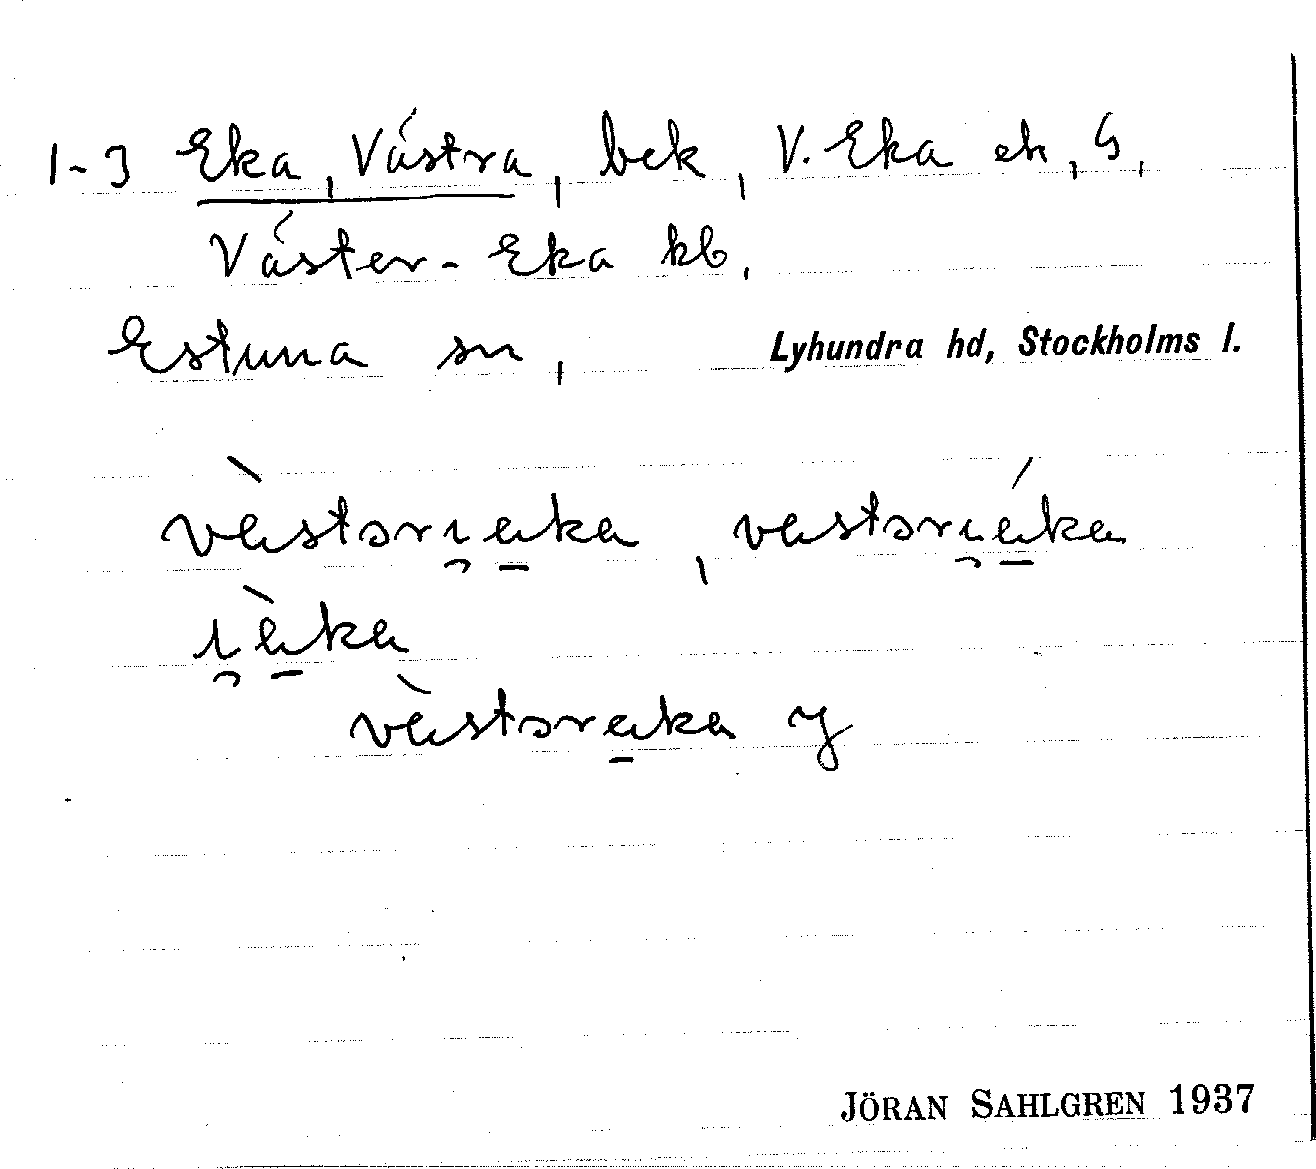 1-3 Eka, Västra, bek, V. Eka ek, G,
Väster-Eka kb.
Estuna sn, Lyhundra hd, Stockholms l.
vὰstərı̯a̱ka, vastərı̯á̱ka
ı̯à̱ka
vàstəra̱ka y
JÖRAN SAHLGREN 1937